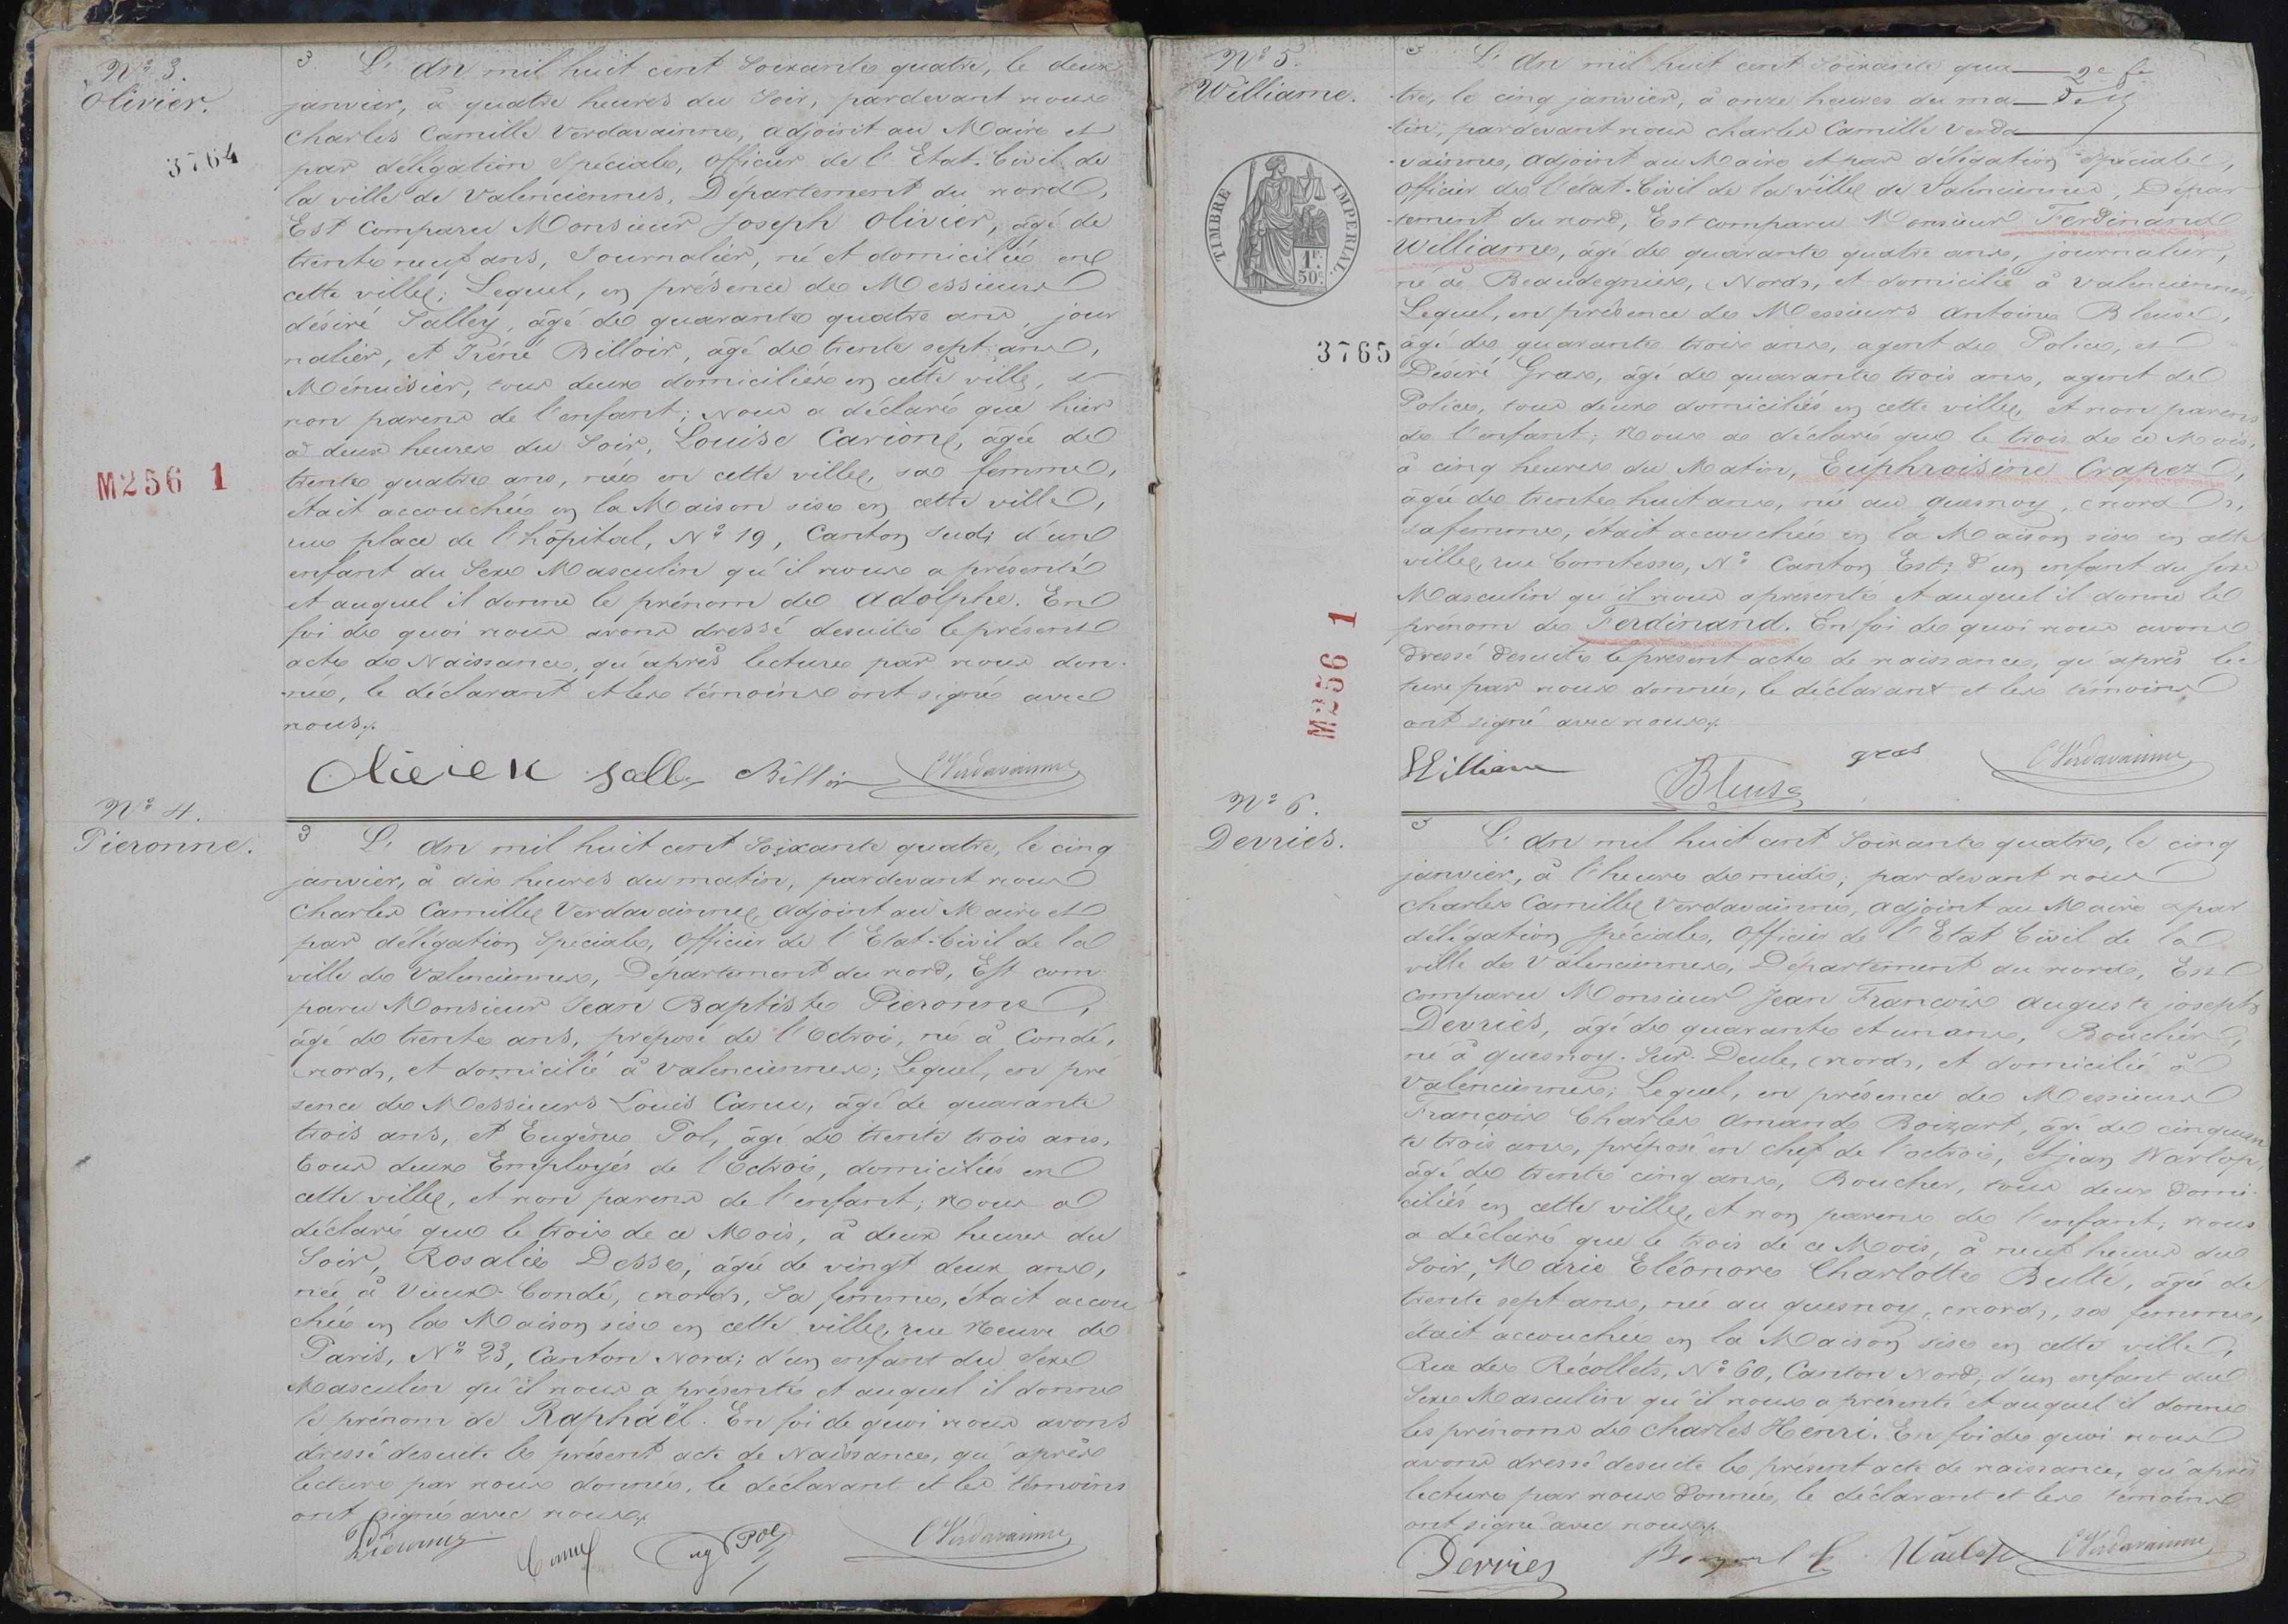 Nº 3.
Olivier.
3764
M256 1
L'An mil huit cent soixante quatre, le deux
janvier, à quatre heures du soir, pardevant nous
Charles Camille Verdavainne, adjoint au Maire et
par délégation Spéciale, Officier de l'Etat-Civil de
la ville de Valenciennes, Département du nord,
Est comparu Monsieur Joseph Olivier, âgé de
trente neuf ans, Journalier, né et domicilié en
cette ville; Lequel, en présence de Messieurs
désiré Salley, âgé de quarante quatre ans, jour
nalier, et Iréné Billoir, âgé de trente sept ans,
Menuisier, tous deux domiciliés en cette ville, et
non parens de l'enfant; Nous a déclaré que hier
à deux heures du Soir, Louise Carion, âgée de
trente quatre ans, née en cette ville, sa femme,
était accouchée en la Maison sise en cette ville,
rue place de l'hôpital, Nº 19, Canton Sud; d'un
enfant du Sexe Masculin qu'il nous a présenté
et auquel il donne le prénom de Adolphe. En
foi de quoi nous avons dressé desuite le présent
acte de Naissance, qu'après lecture par nous don-
née, le déclarant et les témoins ont signé avec
nous.
Olivier Salley Billoir CVerdavainne
Nº 4.
Pieronne.
L'An mil huit cent soixante quatre, le cinq
janvier, à dix heures du matin, pardevant nous
Charles Camille Verdavainne, adjoint au Maire et
par délégation Spéciale, Officier de l'Etat-Civil de la
ville de Valenciennes, Département du nord, Est com
paru Monsieur Jean Baptiste Pieronne,
âgé de trente ans, préposé de l'Octroi, né à Condé,
(nord), et domicilié à Valenciennes; Lequel, en pré
sence de Messieurs Louis Canu, âgé de quarante
trois ans, et Eugène Pol, âgé de trente trois ans,
tous deux Employés de l'Octroi, domiciliés en
cette ville, et non parens de l'enfant; Nous a
déclaré que le trois de ce Mois, à deux heures du
Soir, Rosalie Desse, âgée de vingt deux ans,
née à Vieux-Condé, (nord), Sa femme, était accou
chée en la Maison sise en cette ville, rue Neuve de
Paris, Nº 23, Canton Nord; d'un enfant du Sexe
Masculin qu'il nous a présenté et auquel il donne
le prénom de Raphaël. En foi de quoi nous avons
dressé desuite le présent acte de Naissance, qu'après
lecture par nous donnée, le déclarant et les témoins
ont signé avec nous.
Pieronne Canu Eug Pol CVerdavainne
Nº 5.
Williame.
TIMBRE IMPERIAL
1F.
50c
3765
M256 1
L'An mil huit cent soixante qua 2e fe
tre, le cinq janvier, à onze heures du ma
tin, pardevant nous Charles Camille Verda
vainne, adjoint au Maire et par délégation spéciale,
Officier de l'état-Civil de la ville de Valenciennes, Dépar
tement du nord, Est comparu Monsieur Ferdinand
Williame, âgé de quarante quatre ans, journalier,
né à Beaudegnies, (Nord), et domicilié à Valenciennes;
Lequel, en présence de Messieurs Antoine Bleuse,
âgé de quarante trois ans, agent de Police, et
Désiré Gras, âgé de quarante trois ans, agent de
Police, tous deux domiciliés en cette ville, et non parens
de l'enfant; Nous a déclaré que le trois de ce Mois,
à cinq heures du Matin, Euphroisine Crapez,
âgée de trente huit ans, née au quesnoy, (nord),
sa femme, était accouchée en la Maison sise en cette
ville, rue Comtesse, Nº Canton Est; d'un enfant du Sexe
Masculin qu'il nous a présenté et auquel il donne le
prénom de Ferdinand. En foi de quoi nous avons
dressé desuite le présent acte de naissance, qu'après lec
ture par nous donnée, le déclarant et les témoins
ont signé avec nous.
Williame Bleuse gras CVerdavainne
Nº 6.
Devriès.
L'An mil huit cent soixante quatre, le cinq
janvier, à l'heure de midi, pardevant nous
Charles Camille Verdavainne, adjoint au Maire et par
délégation spéciale, Officier de l'Etat Civil de la
ville de Valenciennes, Département du nord, Est
comparu Monsieur Jean François Auguste joseph
Devriès, âgé de quarante et un ans, Boucher,
né à quesnoy-Sur-Deule, (nord), et domicilié à
Valenciennes; Lequel, en présence de Messieurs
François Charles Amand Boizart, âgé de cinquan
te trois ans, préposé en chef de l'octroi, et jean Warlop,
âgé de trente cinq ans, Boucher, tous deux domi
ciliés en cette ville, et non parens de l'enfant, nous
a déclaré que le trois de ce Mois, à neuf heures du
Soir, Marie Eléonore Charlotte Bulté, âgée de
trente sept ans, née au quesnoy, (nord), sa femme,
était accouchée en la Maison sise en cette ville,
Rue des Récollets, Nº 60, Canton Nord, d'un enfant du
Sexe Masculin qu'il nous a présenté et auquel il donne
les prénoms de Charles Henri. En foi de quoi nous
avons dressé desuite le présent acte de naissance, qu'après
lecture par nous donnée, le déclarant et les témoins
ont signé avec nous.
Devries Warlop CVerdavainne